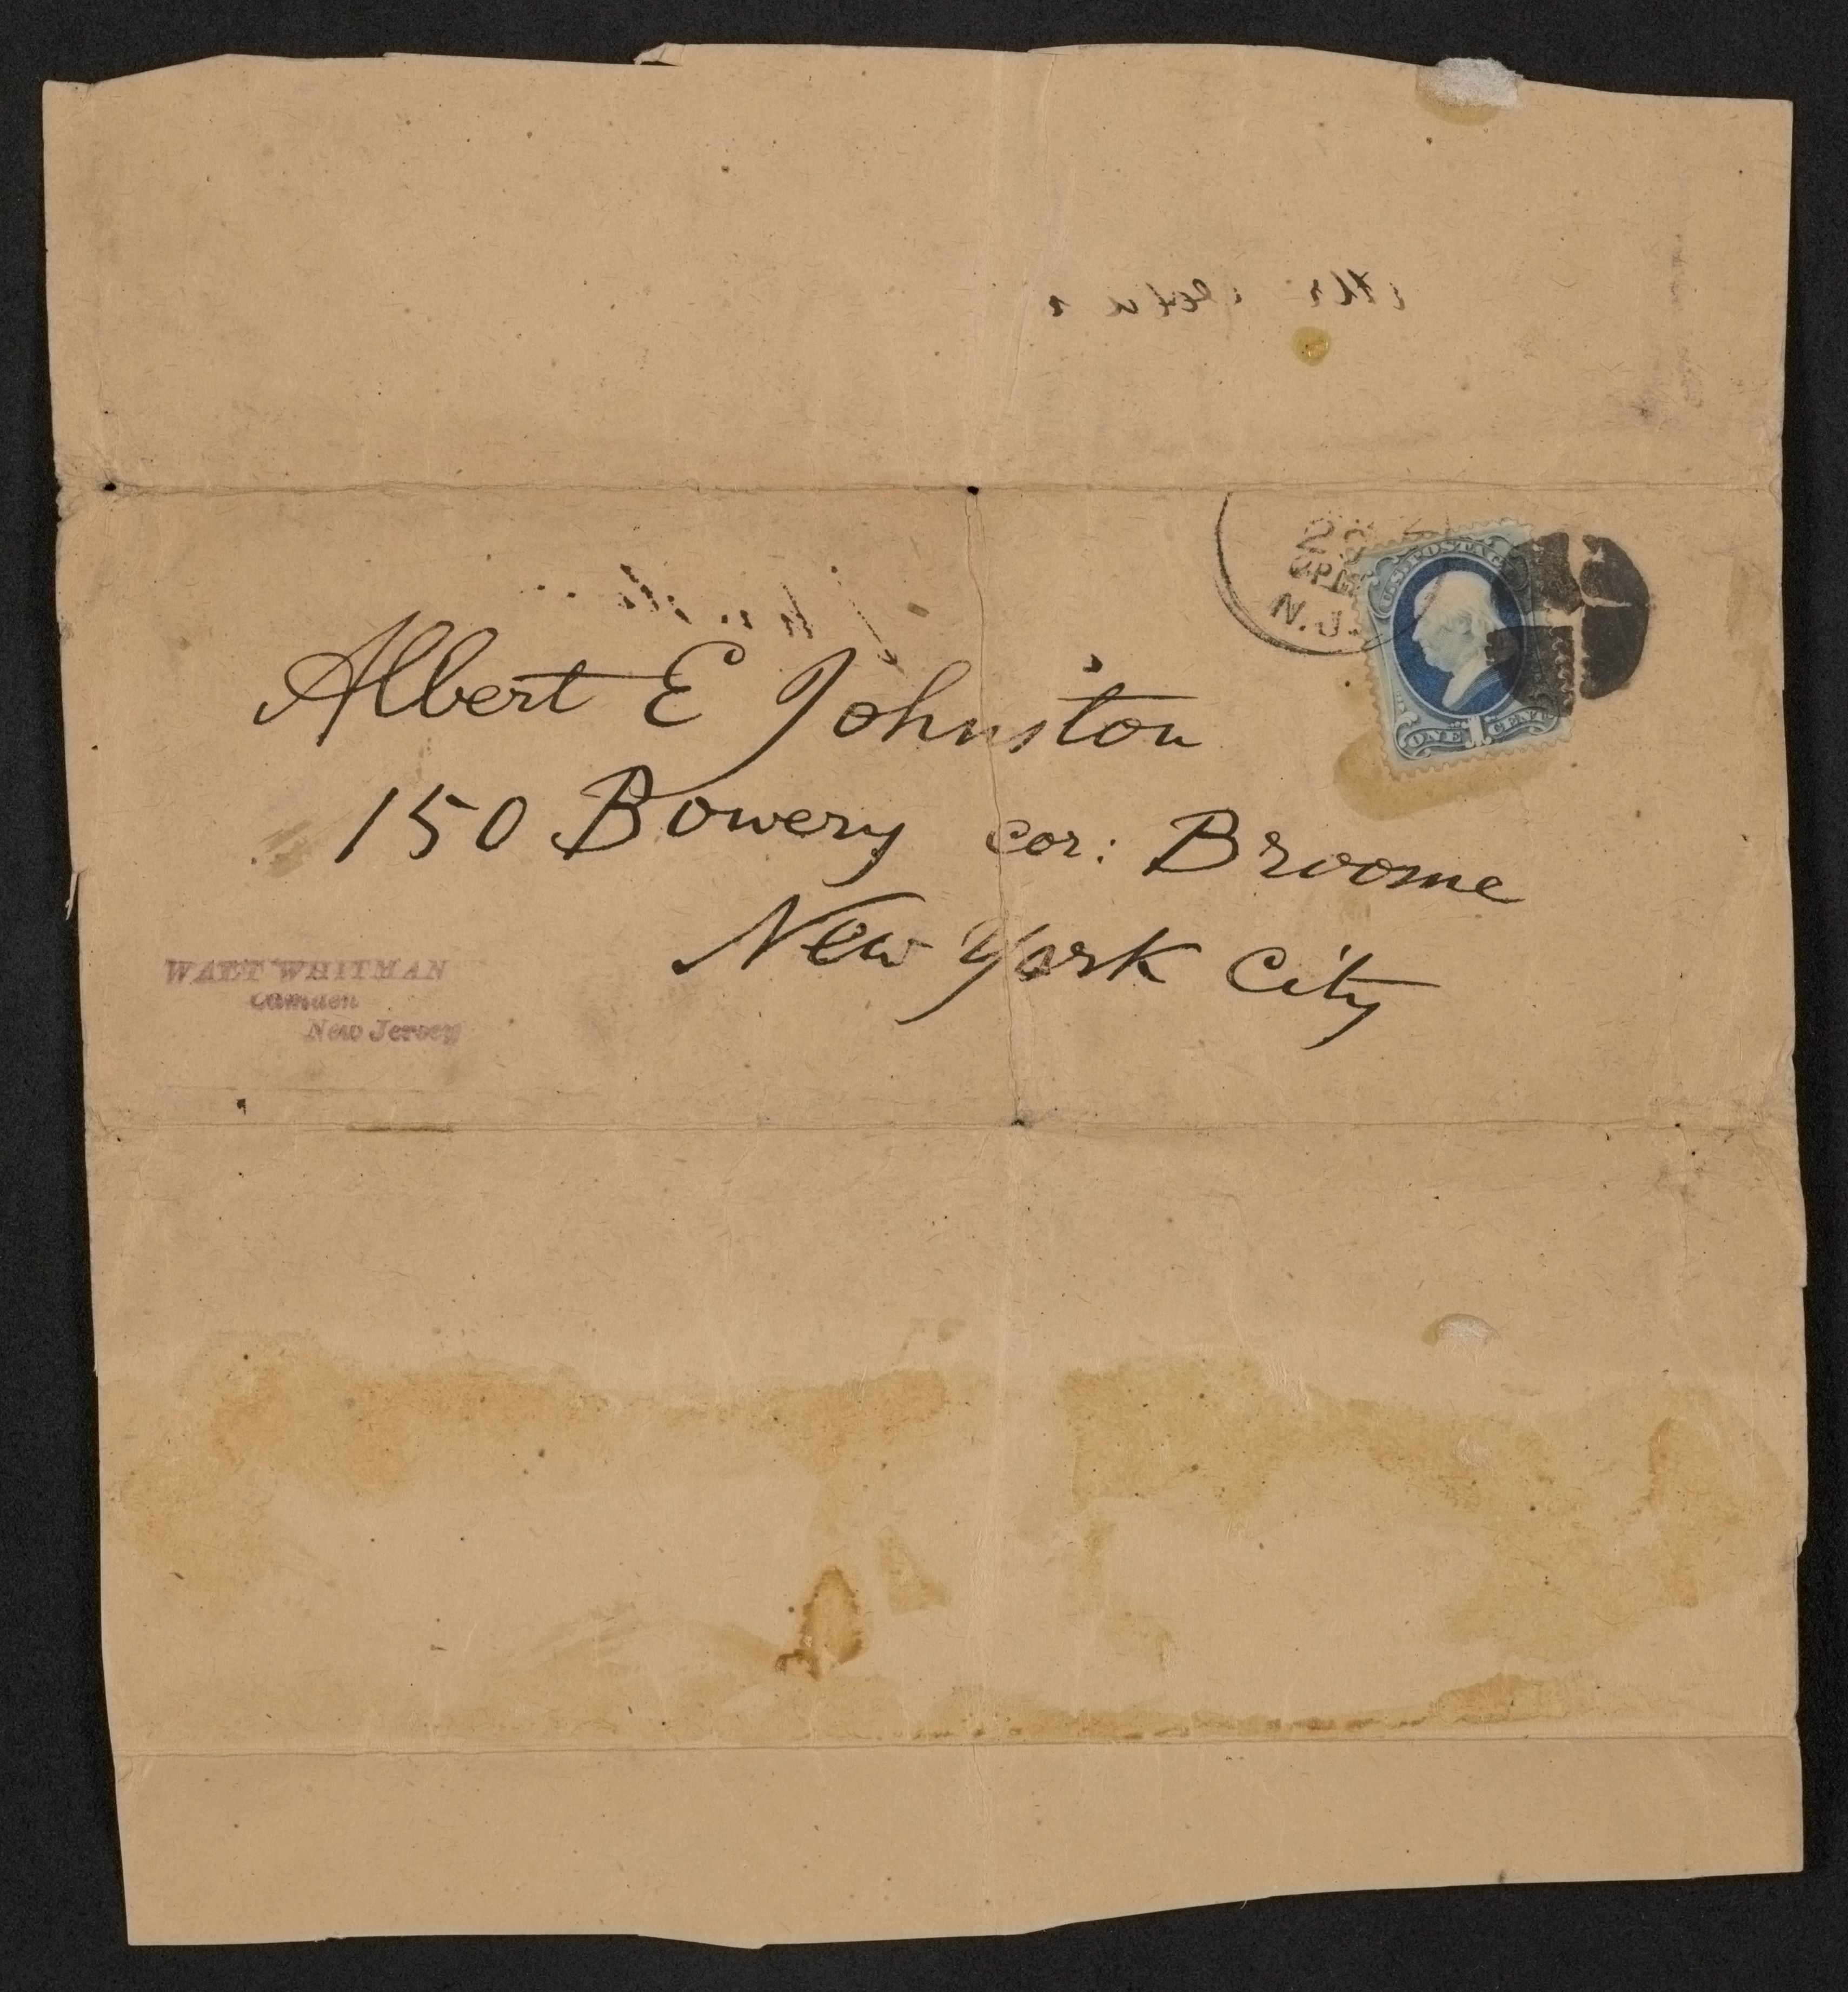 N.J.
U.S. POSTAGE
ONE 1 CENT
Albert E Johnston
150 Bowery cor: Broome
New York City
WALT WHITMAN
Camden
New Jersey